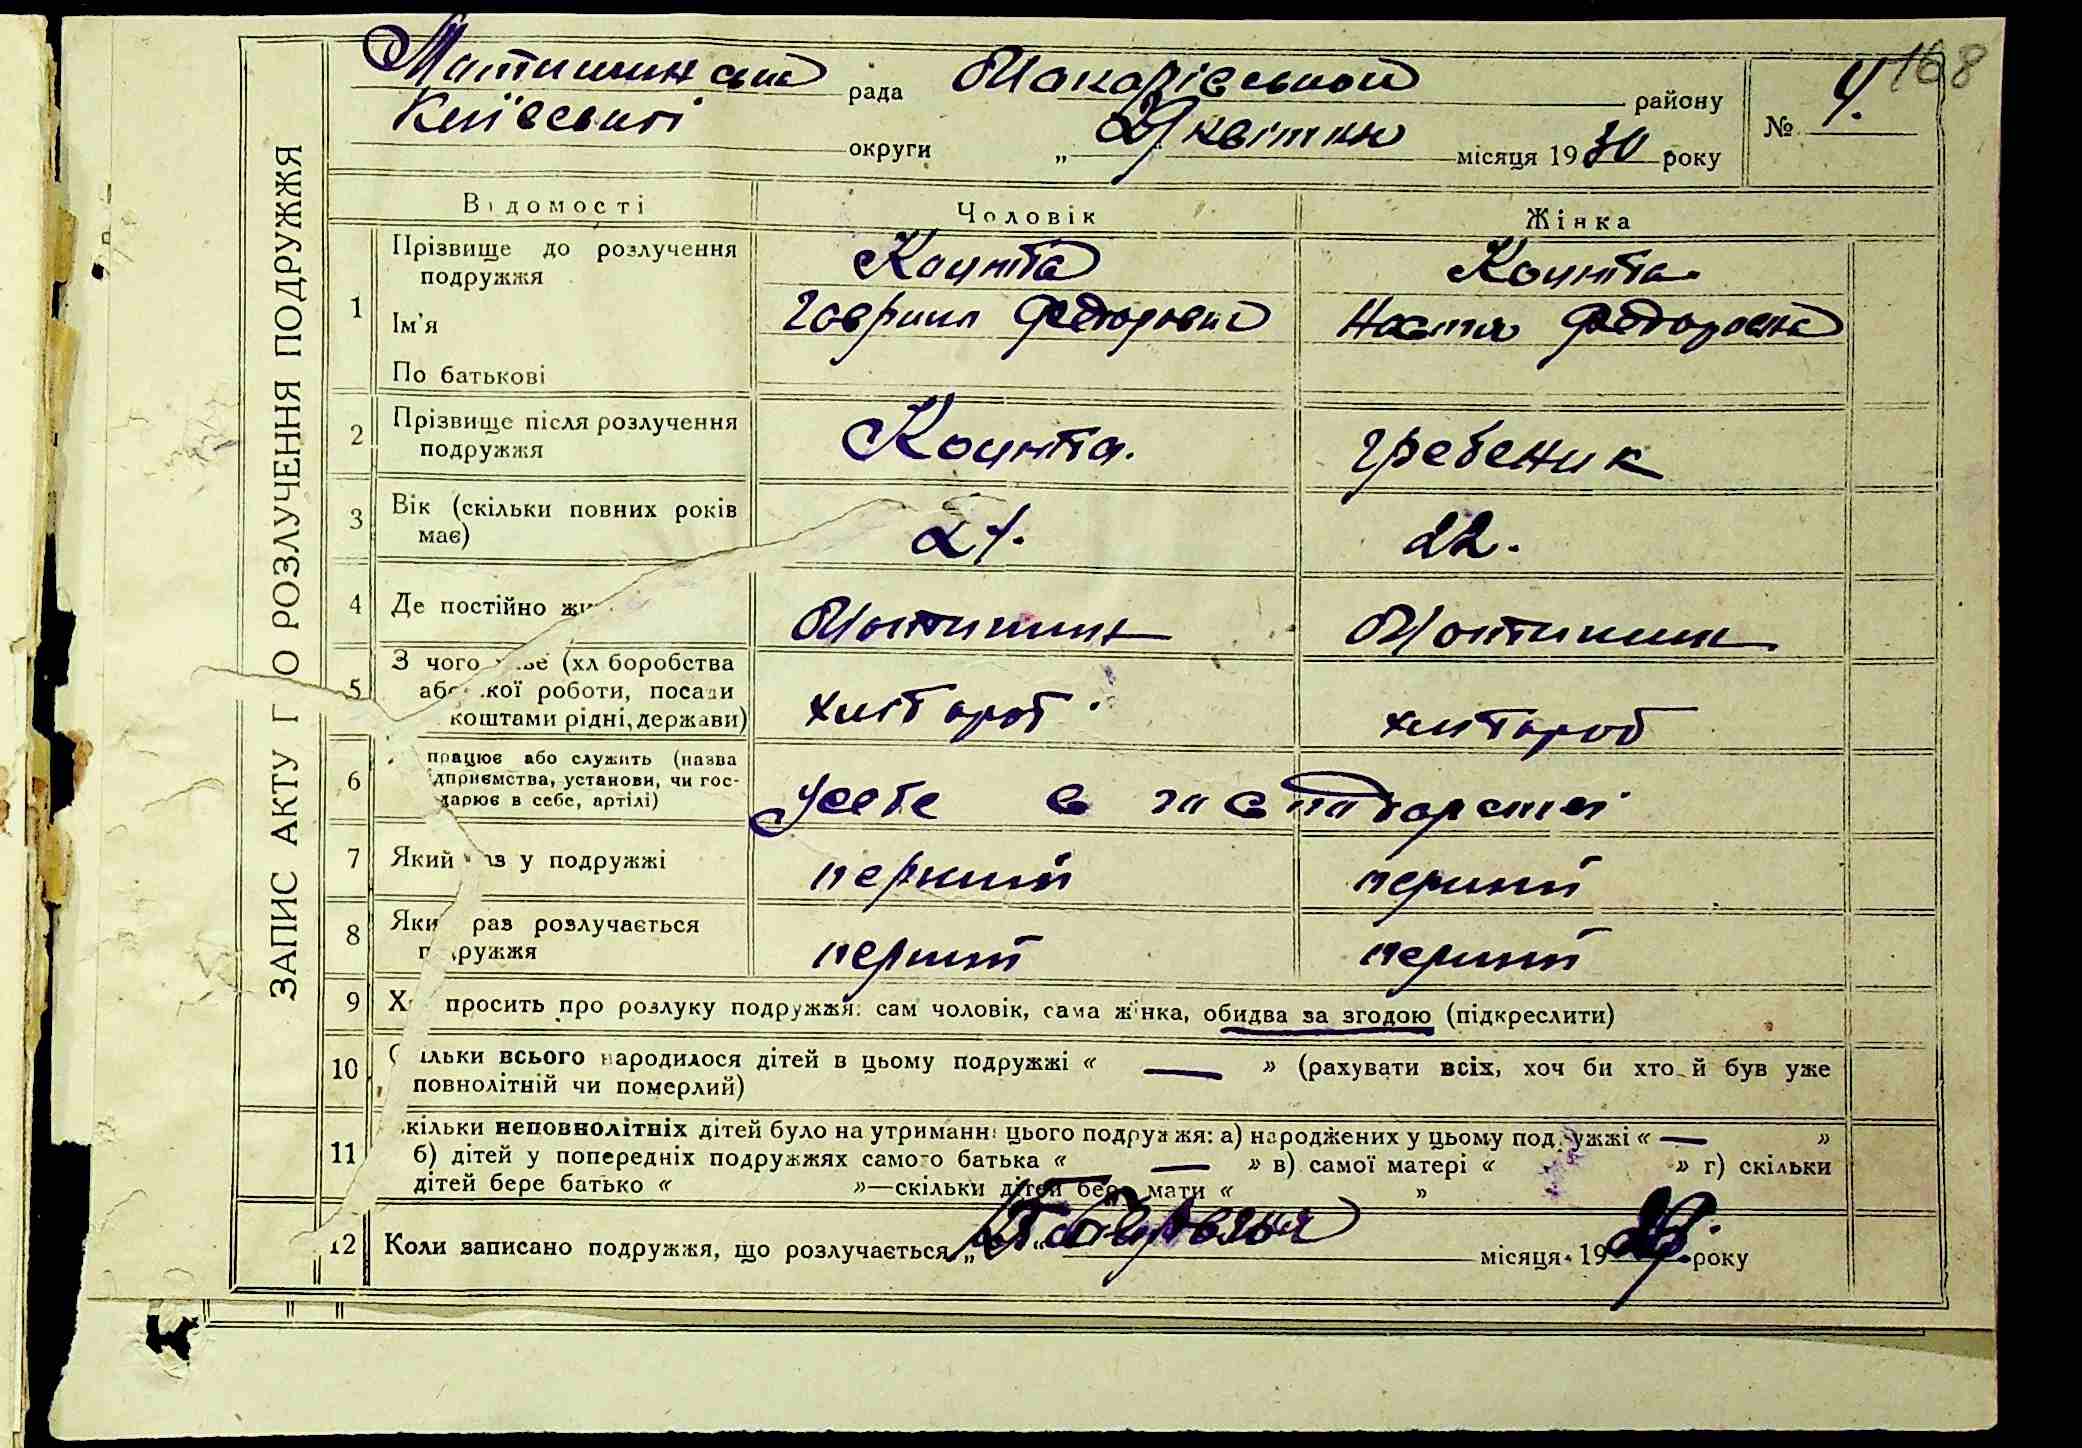 168
Мотижинська рада Макарівський району № 4.
Київській округи „ 21 квітня місяця 1930 року
ЗАПИС АКТУ ПРО РОЗЛУЧЕННЯ ПОДРУЖЖЯ
Відомості Чоловік Жінка
1 Прізвище до розлучення подружжя Коцюба Коцюба
Ім'я Гавриил Федорович Настя Федоровна
По батькові
2 Прізвище після розлучення подружжя Коцюба. Гребеник
3 Вік (скільки повних років має) 21. 22.
4 Де постійно жи Мотижин Мотижин
5 З чого живе (хліборобства
або якої роботи, посади
коштами рідні, держави) хлібороб хлібороб
6 працює або служить (назва
підприємства, установи, чи гос-
дарює в себе, артілі) У себе в господарстві
7 Який раз у подружжі перший перший
8 Який раз розлучається
подружжя перший перший
9 Хто просить про розлуку подружжя: сам чоловік, сама жінка, обидва за згодою (підкреслити)
10 Скільки всього народилося дітей в цьому подружжі « — » (рахувати всіх, хоч би хто й був уже
повнолітній чи померлий)
11 Скільки неповнолітніх дітей було на утриманні цього подружжя: а) народжених у цьому подружжі « — »
б) дітей у попередніх подружжях самого батька « — » в) самої матері « » г) скільки
дітей бере батько « »—скільки дітей бере мати « »
12 Коли записано подружжя, що розлучається „ місяця 19 року